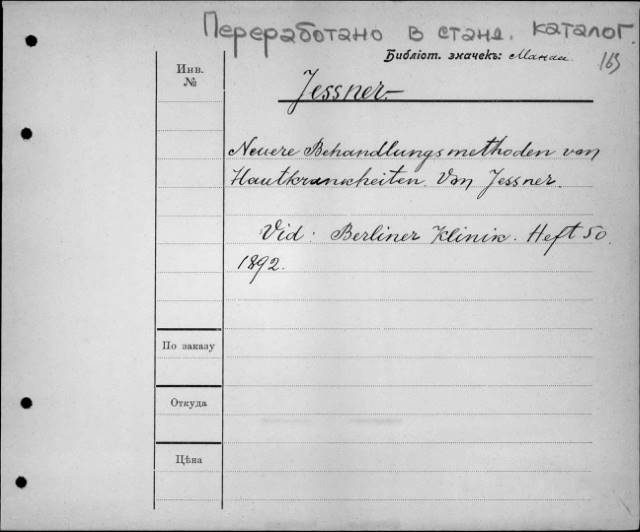 Переработано в станд. каталог
Библіот. значекъ:
163
Инв. №
Jessner
Neuere Behandlungsmethoden von
Hautkrankheiten. Von Jessner.
Vid. Berliner Klinik. Heft 50.
1892.
По заказу
Откуда
Цѣна